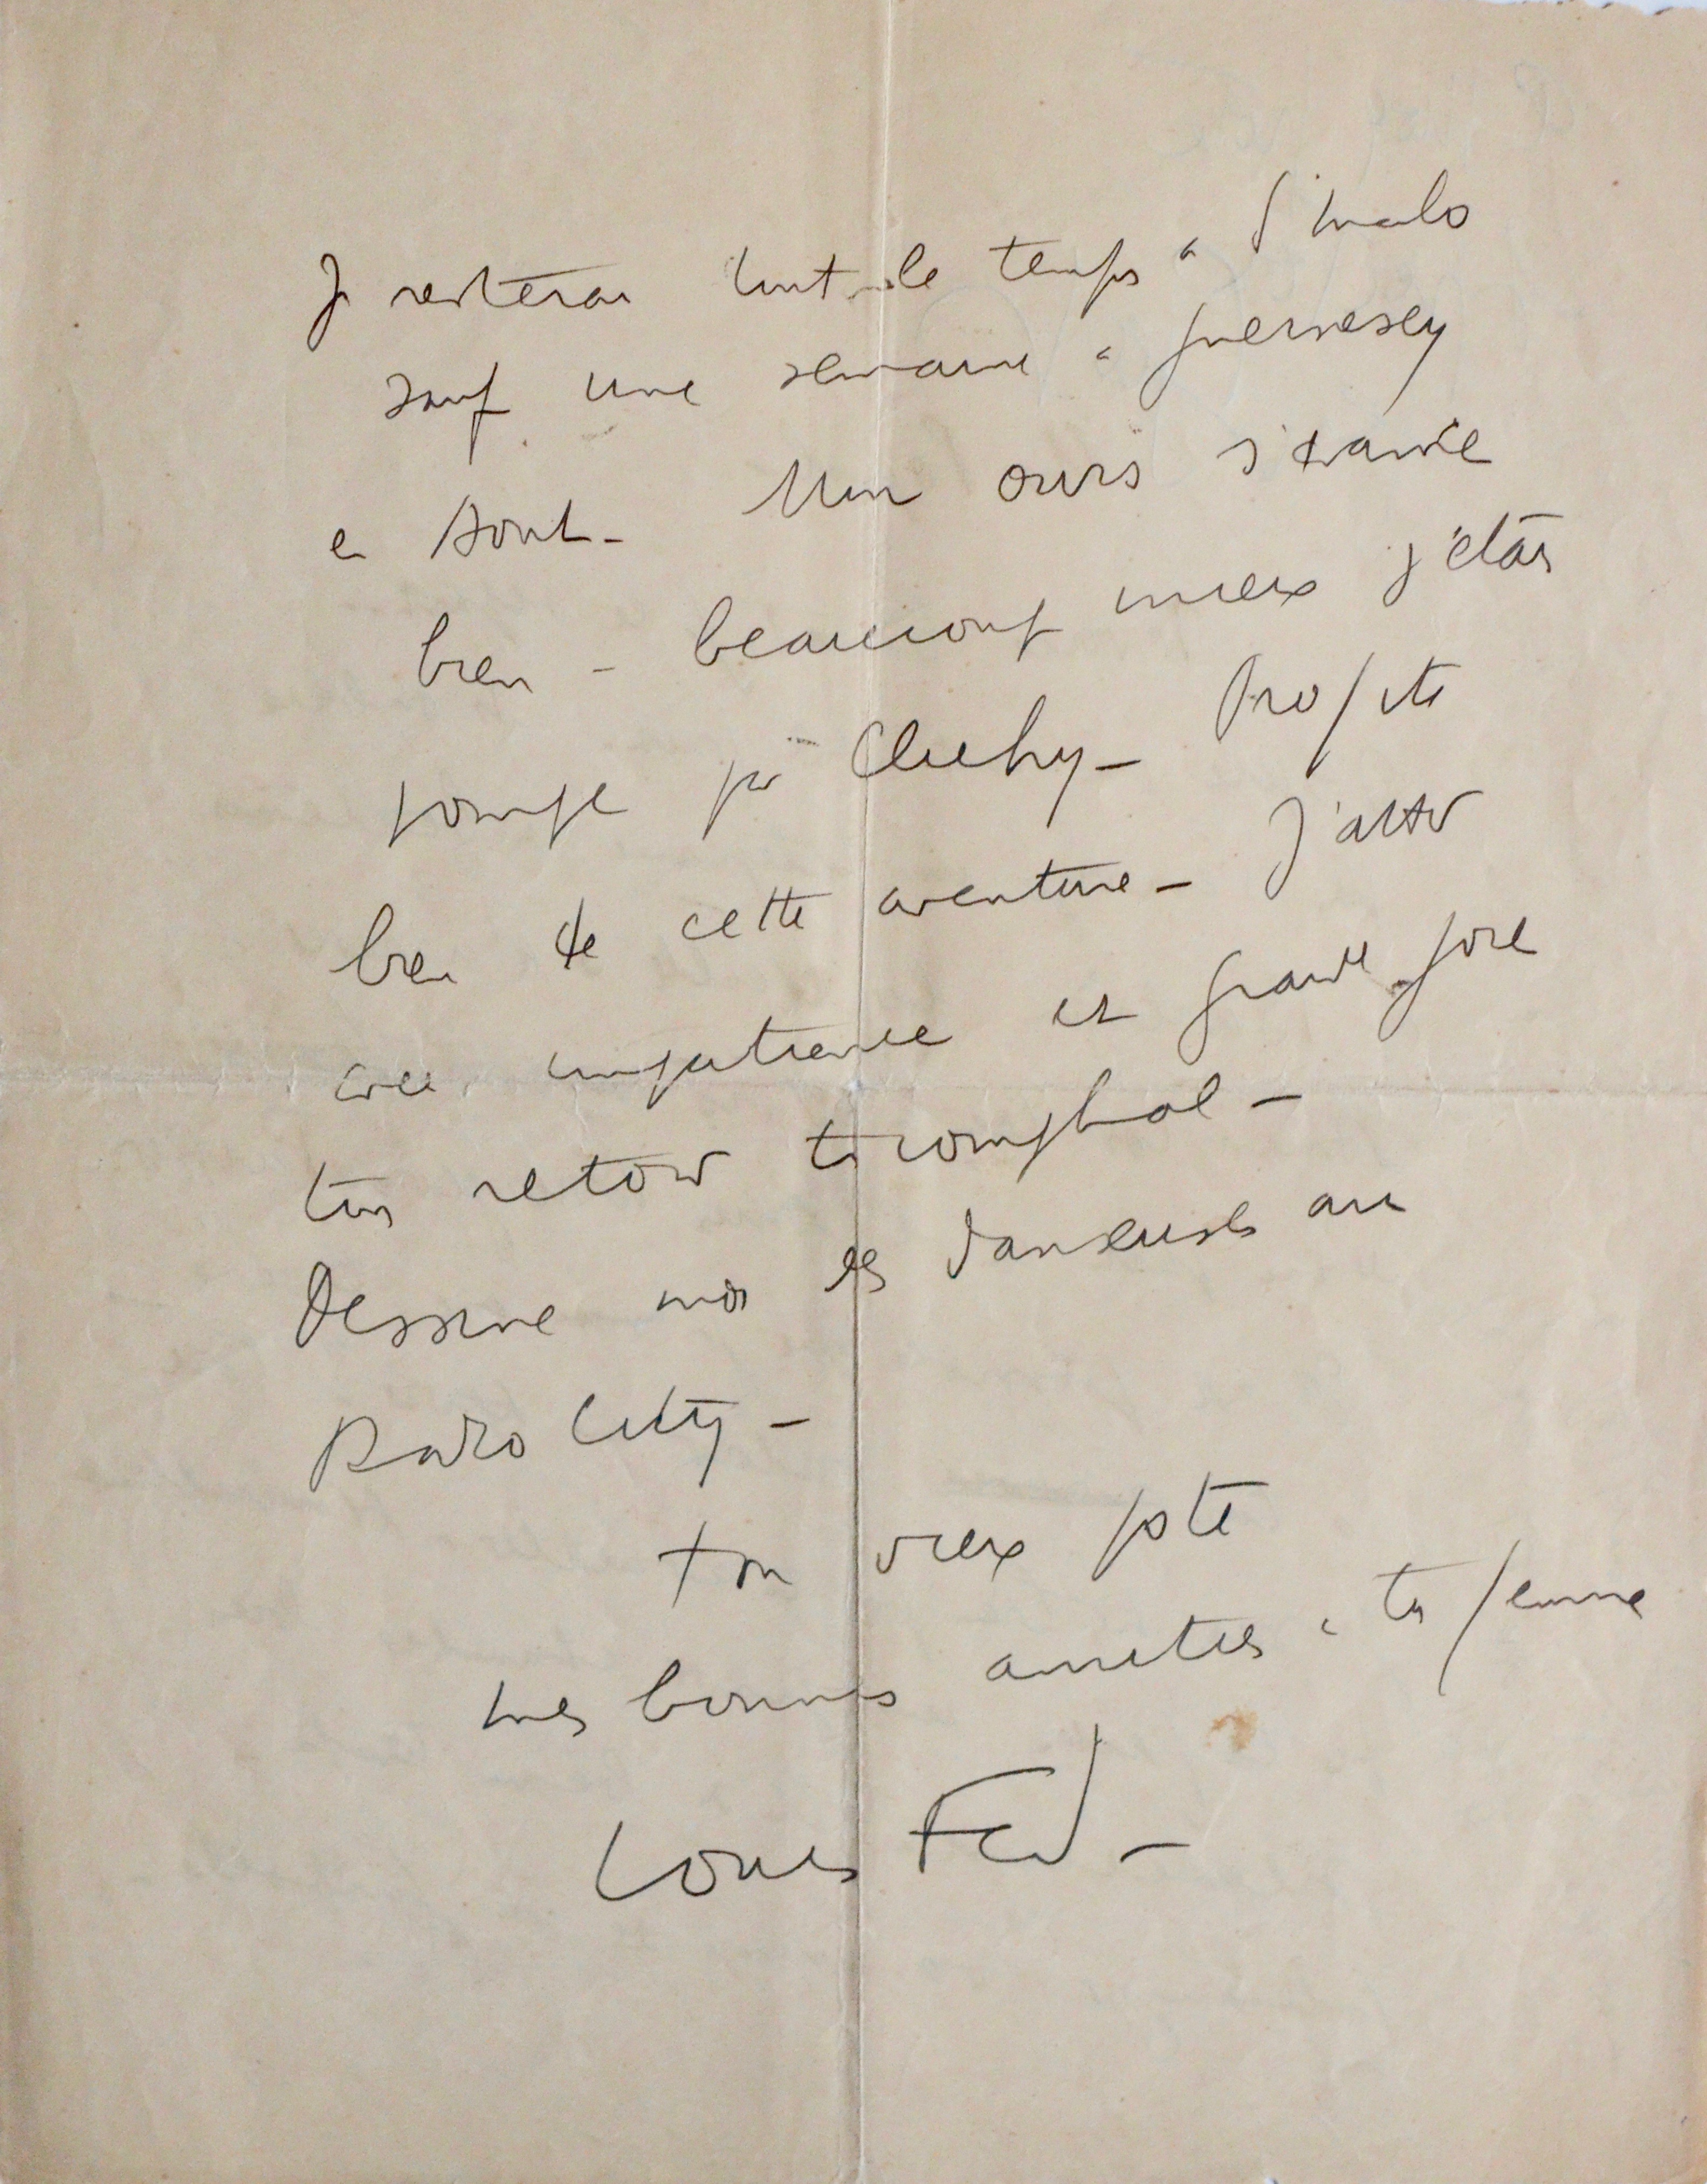 Je resterai tout le temps à St malo
sauf une semaine à guernesey
en Aout - Mon ours s'avance
bien - beaucoup mieux j'étais
pompé par Clichy - Profite
bien de cette aventure - J'attends
avec impatience et grande joie
ton retour triomphal -
Dessine moi les danseuses au
Radio City -
ton vieux pote
mes bonnes amitiés à ta femme
Louis Ferd -